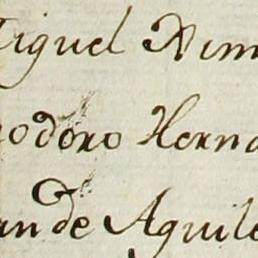 Miguel Xim
eodoro Herna
an de Aguile